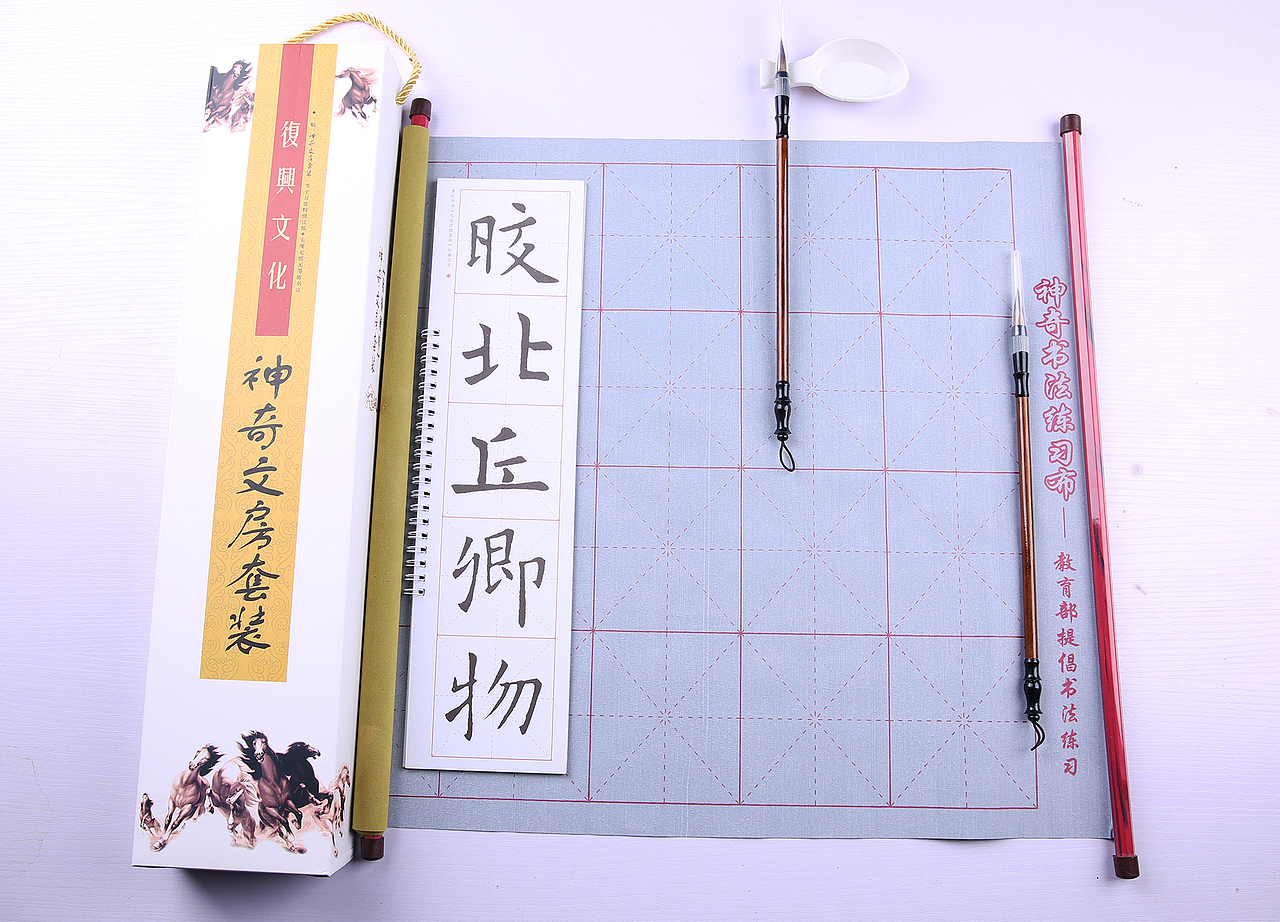 復興文化
神奇文房套装
皎
北
丘
卿
物
神奇书法练习布——教育部提倡书法练习